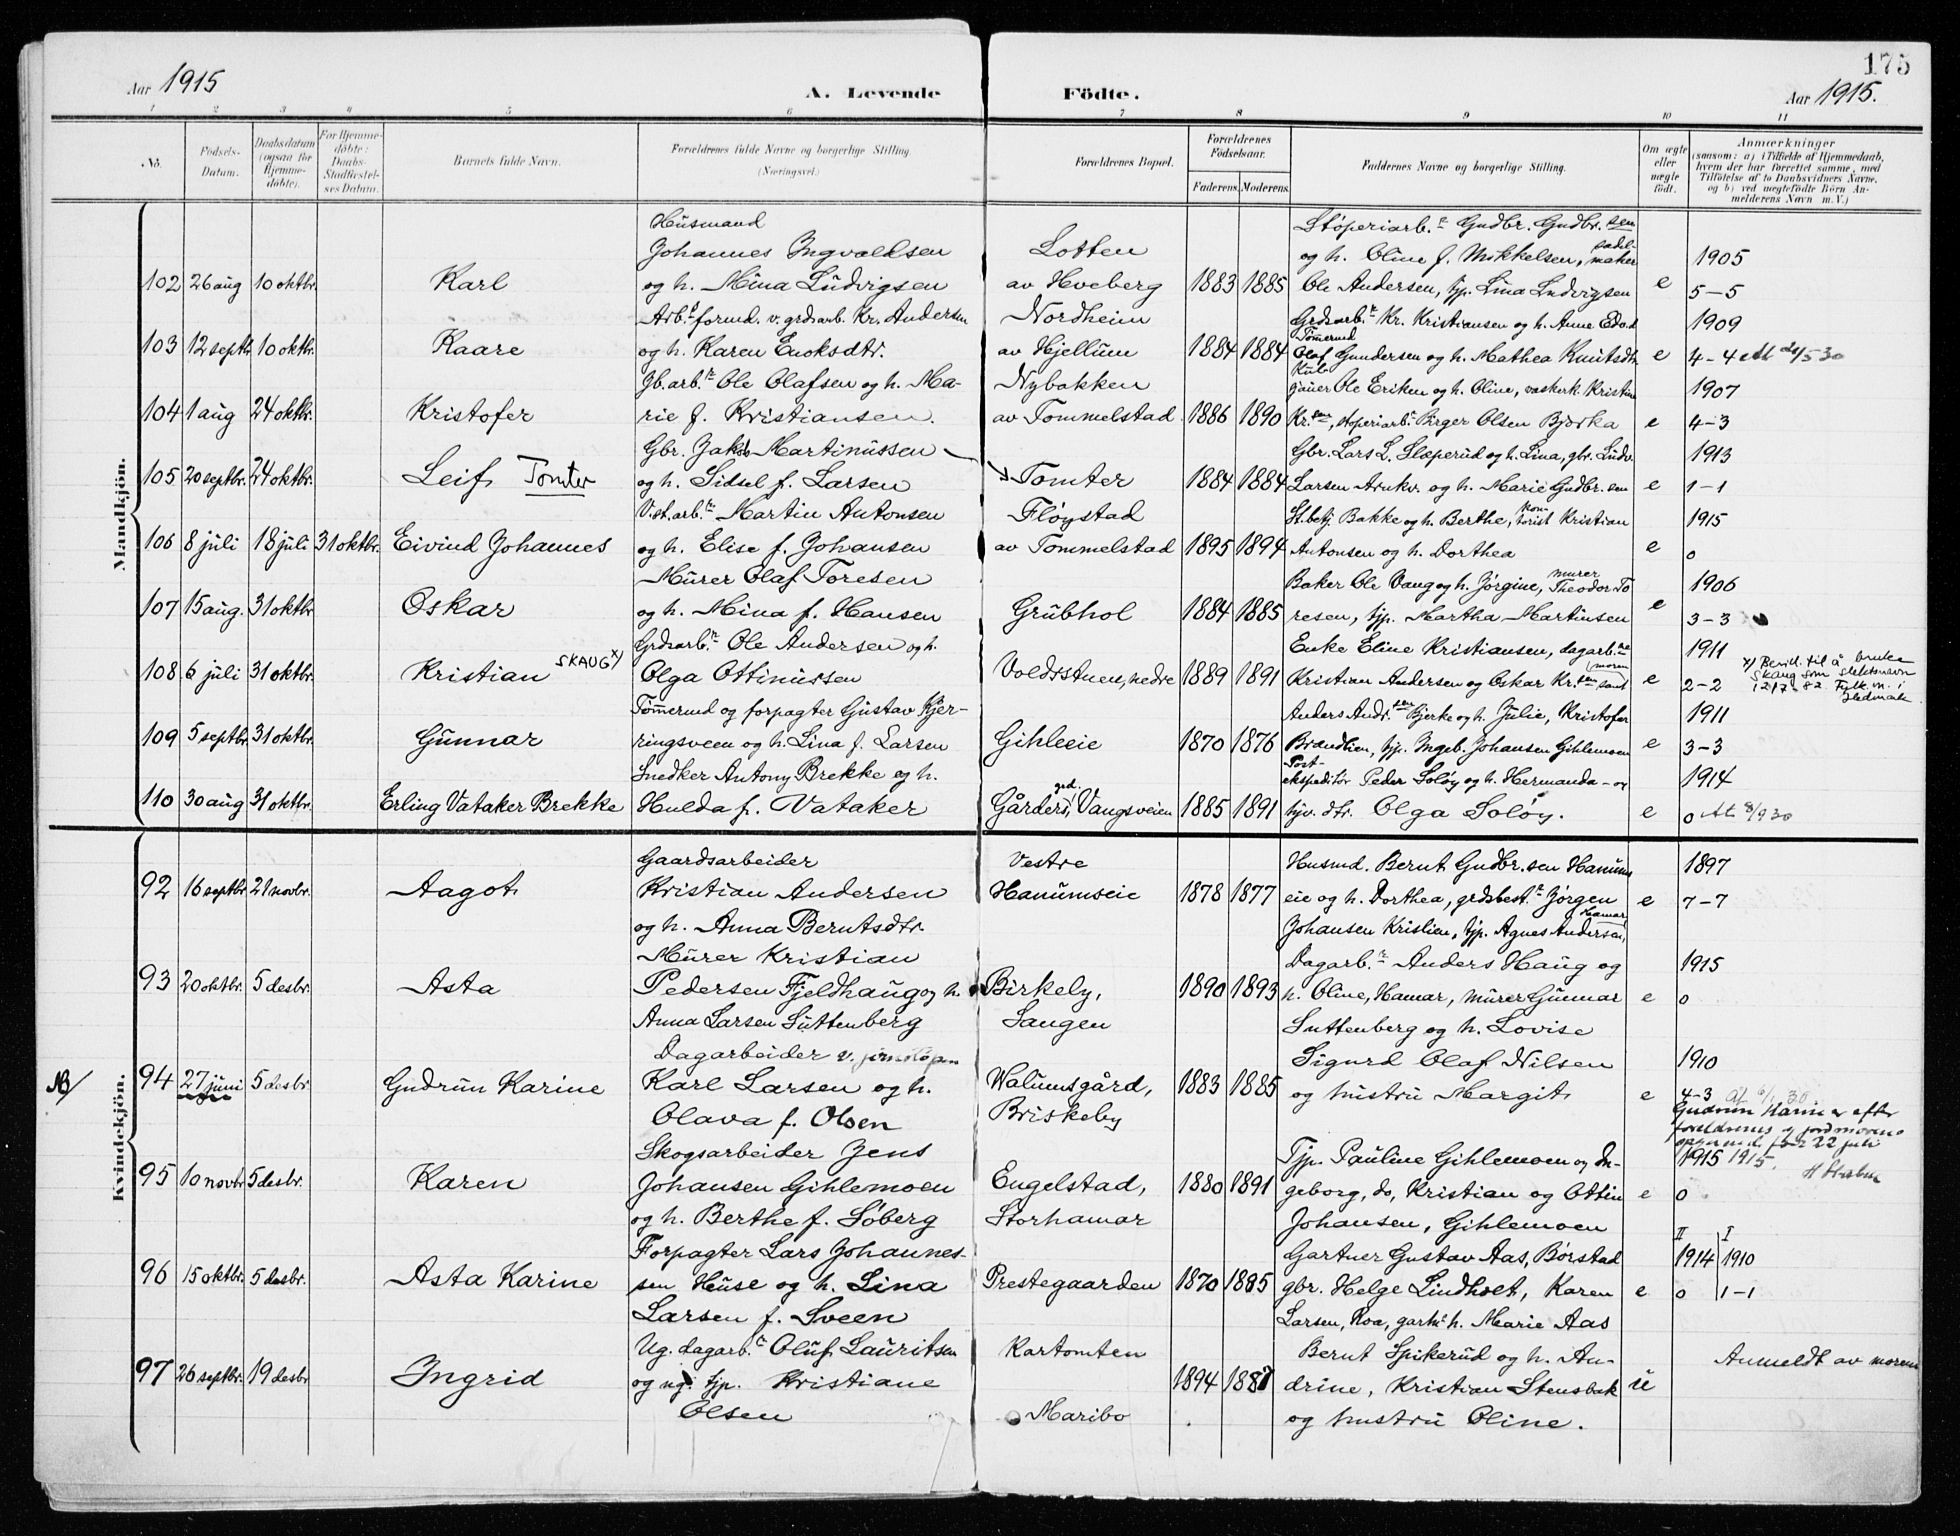 175
Aar 1915
A. Levende
Födte.
Aar 1915.
1 2 3 4 5 6 7 8 9 10 11
No.
Födsels-Datum.
Daabsdatum (ogsaa for Hjemme-döbte).
For Hjemme-döbte: Daabs-Stadfæstel-ses Datum.
Barnets fulde Navn.
Forældrenes fulde Navne og borgerlige Stilling.
(Næringsvei.)
Forældrenes Bopæl.
Forældrenes Födselsaar.
Faderens. Moderens.
Faddernes Navne og borgerlige Stilling.
Om ægte eller uægte födt.
Anmærkninger
(saasom: a) i Tilfælde af Hjemmedaab,
hvem der har forrettet samme, med
Tilföielse af to Daabsvidners Navne,
og b) ved uægtefödte Börn An-
melderens Navn m. V.)
Mandkjön.
Husmand
Johannes Ingvaldsen
Lotten
Støperiarb.r Gudbr. Gudbr.sen
og h. Oline f. Mikkelsen, sadel-maker
1905
102 26 aug 10 oktbr. Karl og h. Mina Ludvigsen av Hveberg 1883 1885 Ole Andersen, tjp. Lina Ludvigsen e 5-5
Arb.formd. v. grdsarb. Kr. Andersen Nordheim Grdsarb.r Kr. Kristiansen og h. Anne Edv.d 1909
Tømmerud
103 12 septbr 10 oktbr. Kaare og h. Karen Enoksdtr. av Hjellum 1884 1884 Olaf Gundersen og h. Mathea Knutsdtr e 4-4
Jb.arb.r Ole Olafsen og h. Ma- Nybakken jauer Ole Eriken og h. Oline, vaskerk. Kristine 1907
104 1 aug 24 oktbr. Kristofer rie f. Kristiansen. av Tommelstad 1886 1890 Kr.sen, støperiarb.r Birger Olsen Bjørka e 4-3
Gbr. Jakob Martinussen Gbr. Lars L. Sleperud og h. Lina, gbr. Ludv. 1913
105 20 septbr. 24 oktbr. Leif Tomter og h. Sidsel f. Larsen Tomter 1884 1884 Larsen Arnkv. og h. Marie Gudbr.sen e 1-1
Martin Antonsen Fløystad St.betj Bakke og h. Berthe, kon-torist Kristian 1915
106 8 juli 18 juli 31 oktbr. Eivind Johannes og h. Elise f. Johansen av Tommelstad 1895 1894 Antonsen og h. Dorthea e 0
Murer Olaf Toresen Baker Ole Vang og h. Jørgine, murer Theodor To 1906
107 15 aug. 31 oktbr Oskar og h. Mina f. Hansen Grubhol 1884 1885 resen, tjp. Martha Martinsen e 3-3
Grdsarb.r Ole Andersen og h. Enke Eline Kristiansen, dagarb.ne 1911
108 6 juli 31 oktbr. Kristian SKAUG x) Olga Ottinussen Voldsstuen, nedre 1889 1891 Kristian Andersen og Oskar Kr.sen samt (moren e 2-2
x) Bevil. til å bruke
Skaug som slektsnavn
1217-82 Fylk.m. i
Hedmark.
Tømmerud og forpagter Gustav Kjer- Anders Andr.sen Bjerke og h. Julie, Kristofer 1911
109 5 septbr. 31 oktbr. Gunnar ringsveen og h. Lina f. Larsen Gihleeie 1870 1876 Brandlien, tjp. Ingeb. Johansen Gihlemoen e 3-3
Snedker Antony Brekke og h. Post-ekspeditør Peder Soløy og h. Hermanda - og 1914
110 30 aug 31 oktbr. Erling Vataker Brekke Hulda f. Vataker Gårders ged, Vangsveien 1885 1891 tjv. dtr. Olga Soløy. e 0 At. 8/9 30
Kvindekjön.
Gaardsarbeider Vestre Husmd. Bernt Gudbr.sen Hanums 1897
92 16 septbr. 21 novbr. Aagot Kristian Andersen Hanumseie 1878 1877 eie og h. Dorthea, grdsbest.r Jørgen e 7-7
og h. Anna Berntsdtr. Johansen Kristlien, tjp. Agnes Andersen, Hamar
Murer Kristian Dagarb.r Anders Haug og 1915
93 20 oktbr. 5 desbr. Asta Pedersen Fjeldhaug og h. Birkely, 1890 1893 h. Oline, Hamar, murer Gunnar e 0
Anna Larsen Suttenberg Sangen Suttenberg og h. Lovise
Dagarbeider v. Sigurd Olaf Nilsen 1910
NB/ 94 27 juni 5 desbr Gudrun Karine Karl Larsen og h. Walumsgård, 1883 1885 og hustru Margit e 4-3
Olava f. Olsen Briskeby
Gudrun Karine er efter
foreldrenes og jordmorens
opgave født 22 juli
1915.
Skogsarbeider Jens Tjp. Pauline Gihlemoen og In- 1915
95 10 novbr 5 desbr. Karen Johansen Gihlemoen Engelstad, 1880 1891 geborg, do, Kristian og Ottin e 0
og h. Berthe f. Søberg Storhamar Johansen, Gihlemoen
II I
Forpagter Lars Johannes- Gartner Gustav Aas, Børstad 1914 1910
96 15 oktbr. 5 desbr. Asta Karine sen Huse og h. Lina Prestegaarden 1870 1885 gbr. Helge Lindholt, Karen e 0 1-1
Larsen f. Sveen Larsen, Roa, gartn.r h. Marie Aas
Ug. dagarb.r Oluf Lauritsen Kartomten Bernt Spikerud og h. An- Anmeldt av moren
97 26 septbr. 19 desbr Ingrid og ug. tjp. Kristiane 1894 1887 drine, Kristian Stensbak u
Olsen Maribo og hustru Oline.